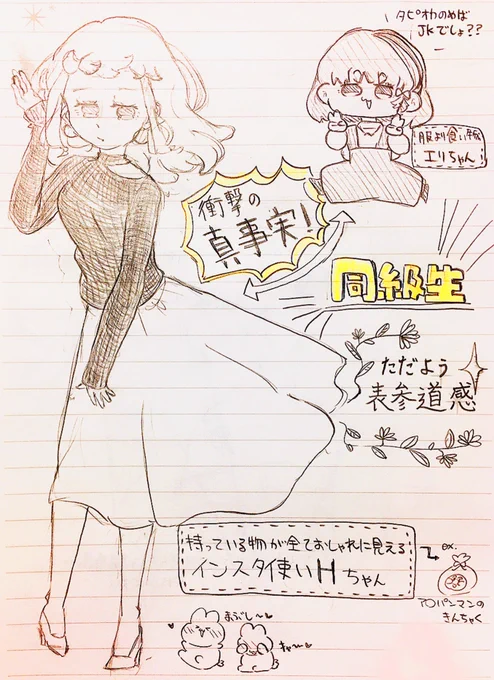 タピオカのめば
JKでしょ??
服より食い気
エリちゃん
衝撃の
真事実!
同級生
ただよう
表参道感
持っている物が全ておしゃれに見える
インスタ使いHちゃん
ex.
アOパンマンの
きんちゃく
まぶし〜
キャ〜